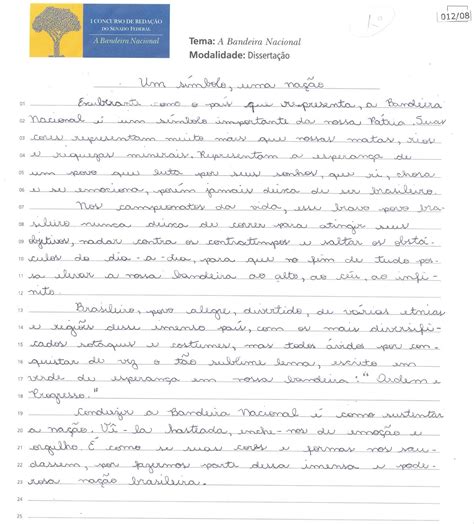 I CONCURSO DE REDAÇÃO
DO SENADO FEDERAL
A Bandeira Nacional
1º
012/08
Tema: A Bandeira Nacional
Modalidade: Dissertação
Um símbolo, uma nação
01 Exuberante como o país que representa, a Bandeira
02 Nacional é um símbolo importante da nossa Pátria. Suas
03 cores representam muito mais que nossas matas, rios
04 e riquezas minerais. Representam a esperança de
05 um povo que luta por seus sonhos, que ri, chora
06 e se emociona, porém jamais deixa de ser brasileiro.
07 Nos campeonatos da vida, esse bravo povo bra-
08 sileiro nunca deixa de correr para atingir seus
09 objetivos, nadar contra os contratempos e saltar os obstá-
10 culos do dia-a-dia, para que no fim de tudo pos-
11 sa elevar a nossa bandeira ao alto, ao céu, ao infi-
12 nito.
13 Brasileiro, povo alegre, divertido, de várias etnias
14 e regiões desse imenso país, com os mais diversifi-
15 cados sotaques e costumes, mas todos ávidos por con-
16 quistar de vez o tão sublime lema, escrito em
17 verde de esperança em nossa bandeira: "Ordem e
18 Progresso."
19 Conduzir a Bandeira Nacional é como sustentar
20 a nação. Vê-la hasteada, enche-nos de emoção e
21 orgulho. É como se suas cores e formas nos sau-
22 dassem, por fazermos parte dessa imensa e pode-
23 rosa nação brasileira.
24
25